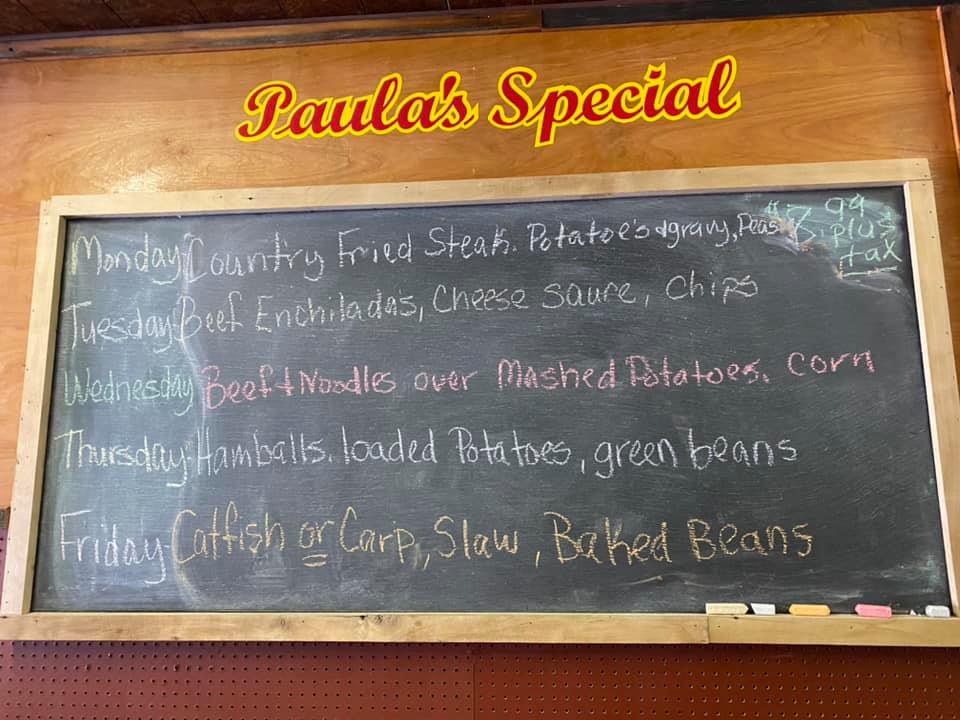 Paula's Special
Monday Country Fried Steak. Potatoe's & gravy, Peas
$8.99
plus
tax
Tuesday Beef Enchilada's, Cheese saure, Chips
Wednesday Beef & Noodles over Mashed Potatoes. Corn
Thursday. Hamballs. loaded Potatoes, green beans
Friday. Catfish or Carp, Slaw, Baked Beans